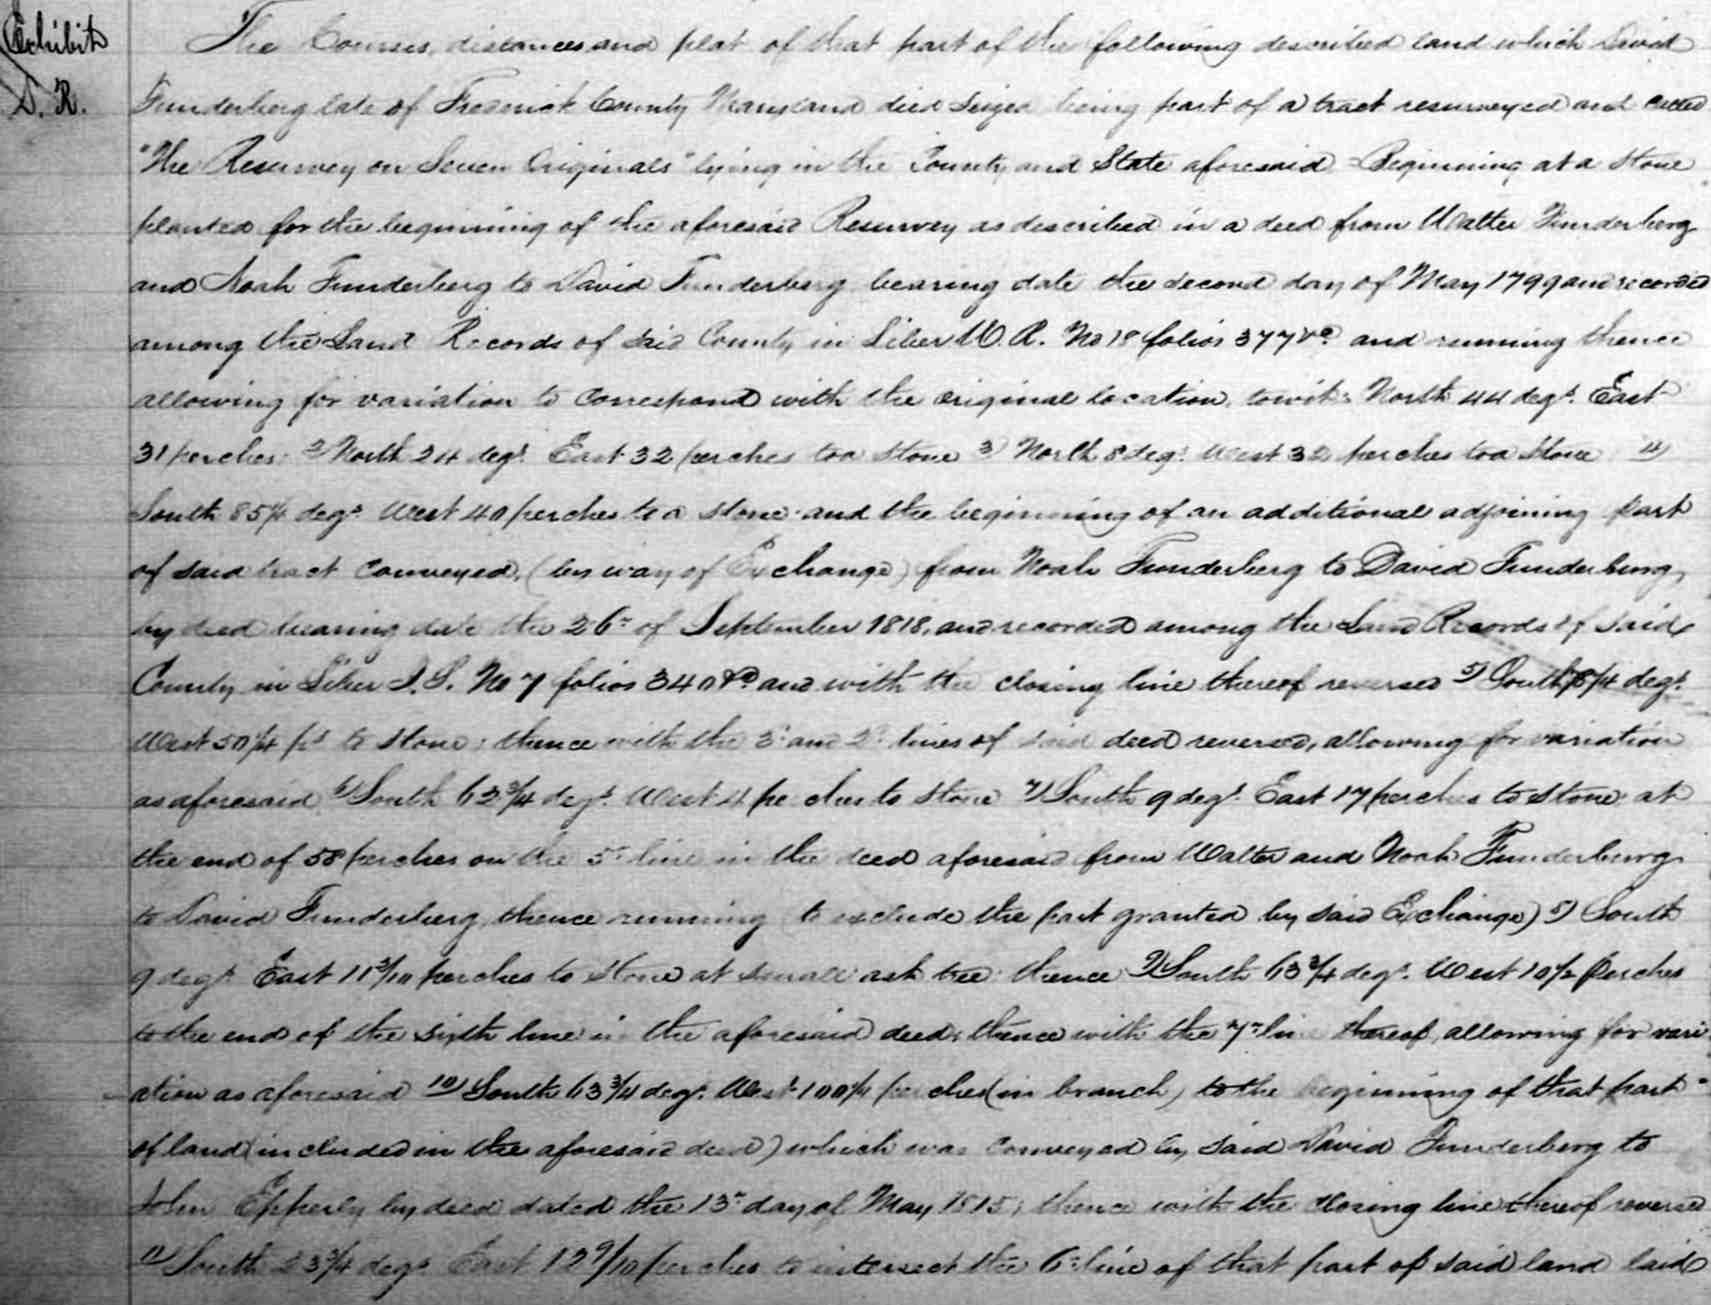 Exhibit
D. R.
The Courses, distances and plat of that part of the following described land which David
Funderberg late of Frederick County Maryland died Seized being part of a tract resurveyed and called
"The Resurvey on Seven Originals" lying in the County and State aforesaid Beginning at a Stone
planted for the beginning of the aforesaid Resurvey as described in a deed from Walter Funderberg
and Noah Funderberg to David Funderberg bearing date the second day of May 1799 and recorded
among the Land Records of said County in Liber W. R. No 18 folios 377 &c and running thence
allowing for variation to correspond with the original location, towit: North 44 degs. East
31 perches 2) North 24 degs. East 32 perches to a stone 3) North 8 degs. West 32 perches to a Stone 4)
South 85¼ degs. West 40 perches to a stone and the beginning of an additional adjoining part
of said tract conveyed, (by way of Exchange) from Noah Funderberg to David Funderburg,
by deed bearing date the 26th of September 1818, and recorded among the Land Records of said
County in Liber J. S. No 7 folios 340 &c and with the closing line thereof reversed 5) South degs.
West 50¼ ps to stone; thence with the 3d and 2d lines of said deed reversed, allowing for variation
as aforesaid 6) South 62¾ degs. West 4 perches to stone 7) South 9 degs. East 17 perches to stone at
the end of 58 perches on the 5th line in the deed aforesaid from Walter and Noah Funderburg
to David Funderberg, thence running (to exclude the part granted by said Exchange) South
9 degs. East 11 3/10 perches to stone at small ash tree: thence 9) South 63¾ degs. West 10½ perches
to the end of the sixth line in the aforesaid deed; thence with the 7th line thereof, allowing for vari
ation as aforesaid 10) South 63¾ degs. West 100¼ perches (in branch) to the beginning of that part
of land (included in the aforesaid deed) which was conveyed by said David Funderberg to
John Epperly by deed dated the 13th day of May 1815; thence with the closing line thereof reversed
11) South 23¾ degs. East 12 9/10 perches to intersect the 6th line of that part of said land laid